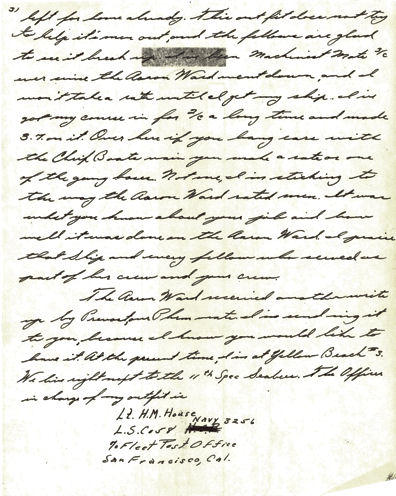 3)
left for home already. This out fit does not try
to help it's men out, and the fellows are glad
to see it break up. Machinist Mate 2/c
ever since the Aaron Ward went down, and I
won't take a rate until I get my ship. I've
got my course in for 2/c a long time and made
3.7 on it. Over here if you hang ears with
the Chief Boats wain you make a rate or one
of the gang bosses. Not me, I'm sticking to
the way the Aaron Ward rated men. It was
what you know about your job and how
well it was done on the Aaron Ward. I praise
that ship and every fellow who served as
part of her crew and your crew.
The Aaron Ward received another write
up by mate. I'm sending it
to you, because I know you would like to
have it. At the present time, I'm at Yellow Beach #3.
We live right next to the 11th Spec Seabees. The Officer
in charge of my outfit is
Lt. H.M. House
L.S.Co58 Navy 3256
℅ Fleet Post Office
San Francisco, Cal.